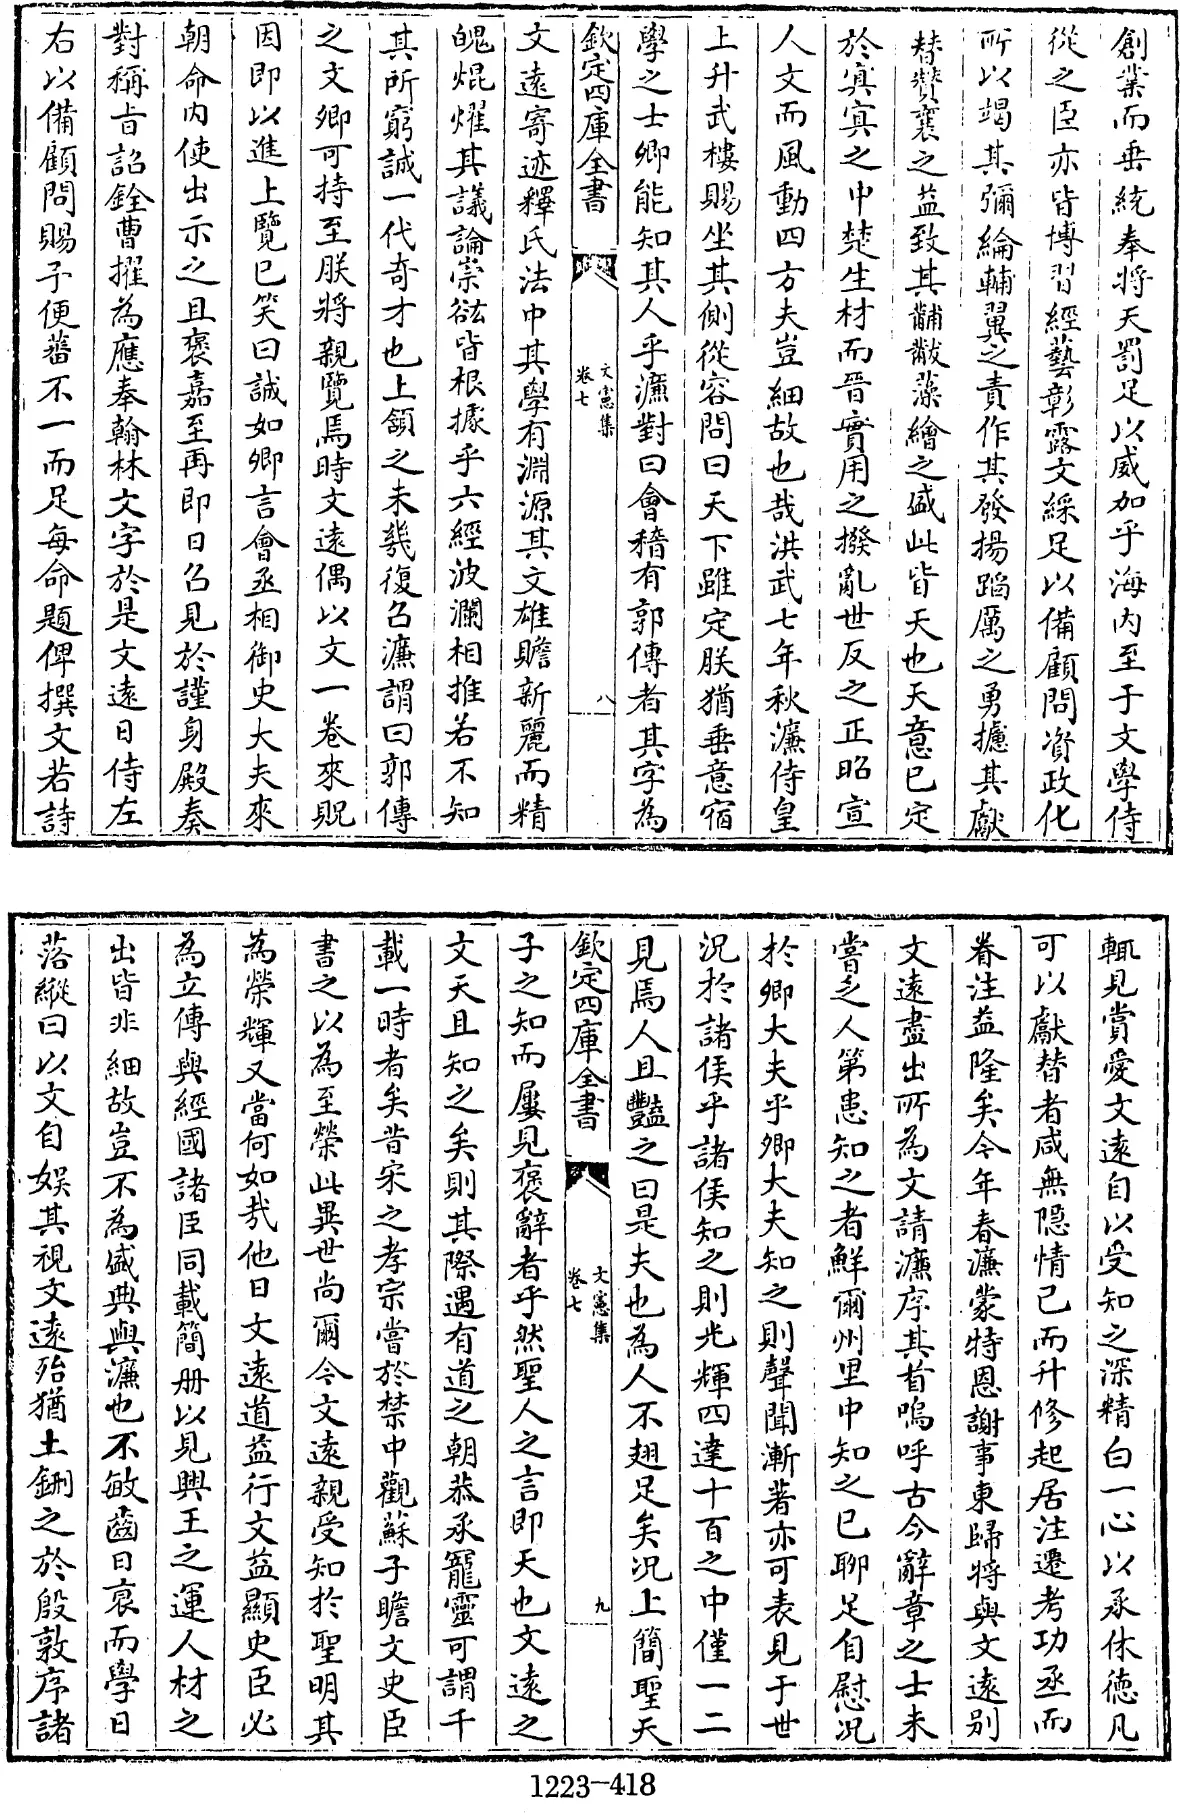 創業而垂統奉將天罰足以威加乎海内至于文學侍
從之臣亦皆博習經藝彰露文綵足以備顧問資政化
所以竭其彌綸輔翼之責作其發揚蹈厲之勇攄其獻
替贊襄之益致其黼黻藻繪之盛此皆天也天意已定
於冥冥之中楚生材而晉實用之撥亂世反之正昭宣
人文而風動四方夫豈細故也哉洪武七年秋濂侍皇
上升武樓賜坐其側從容問曰天下雖定朕猶垂意宿
學之士卿能知其人乎濂對曰會稽有郭傳者其字為
欽定四庫全書
文憲集
卷七
八
文遠寄迹釋氏法中其學有淵源其文雄贍新麗而精
魄焜燿其議論崇谹皆根據乎六經波瀾相推若不知
其所窮誠一代奇才也上頷之未幾復召濂謂曰郭傳
之文卿可持至朕將親覽焉時文遠偶以文一卷來貺
因即以進上覽已笑曰誠如卿言會丞相御史大夫來
朝命内使出示之且褒嘉至再即日召見於謹身殿奏
對稱旨詔銓曹擢為應奉翰林文字於是文遠日侍左
右以備顧問賜予便蕃不一而足每命題俾撰文若詩
輒見賞愛文遠自以受知之深精白一心以承休德凡
可以獻替者咸無隠情已而升修起居注遷考功丞而
眷注益隆矣今年春濂蒙特恩謝事東歸將與文遠别
文遠盡出所為文請濂序其首嗚呼古今辭章之士未
嘗乏人第患知之者鮮爾州里中知之已聊足自慰況
於卿大夫乎卿大夫知之則聲聞漸著亦可表見于世
況於諸侯乎諸侯知之則光輝四達十百之中僅一二
見焉人且豔之曰是夫也為人不翅足矣況上簡聖天
欽定四庫全書
文憲集
卷七
九
子之知而屢見褒辭者乎然聖人之言即天也文遠之
文天且知之矣則其際遇有道之朝恭承寵靈可謂千
載一時者矣昔宋之孝宗嘗於禁中觀蘇子瞻文史臣
書之以為至榮此異世尚爾今文遠親受知於聖明其
為榮輝又當何如哉他日文遠道益行文益顯史臣必
為立傳與經國諸臣同載簡册以見興王之運人材之
出皆非細故豈不為盛典與濂也不敏齒日衰而學日
落縱曰以文自娱其視文遠殆猶土鉶之於殷敦序諸
1223-418